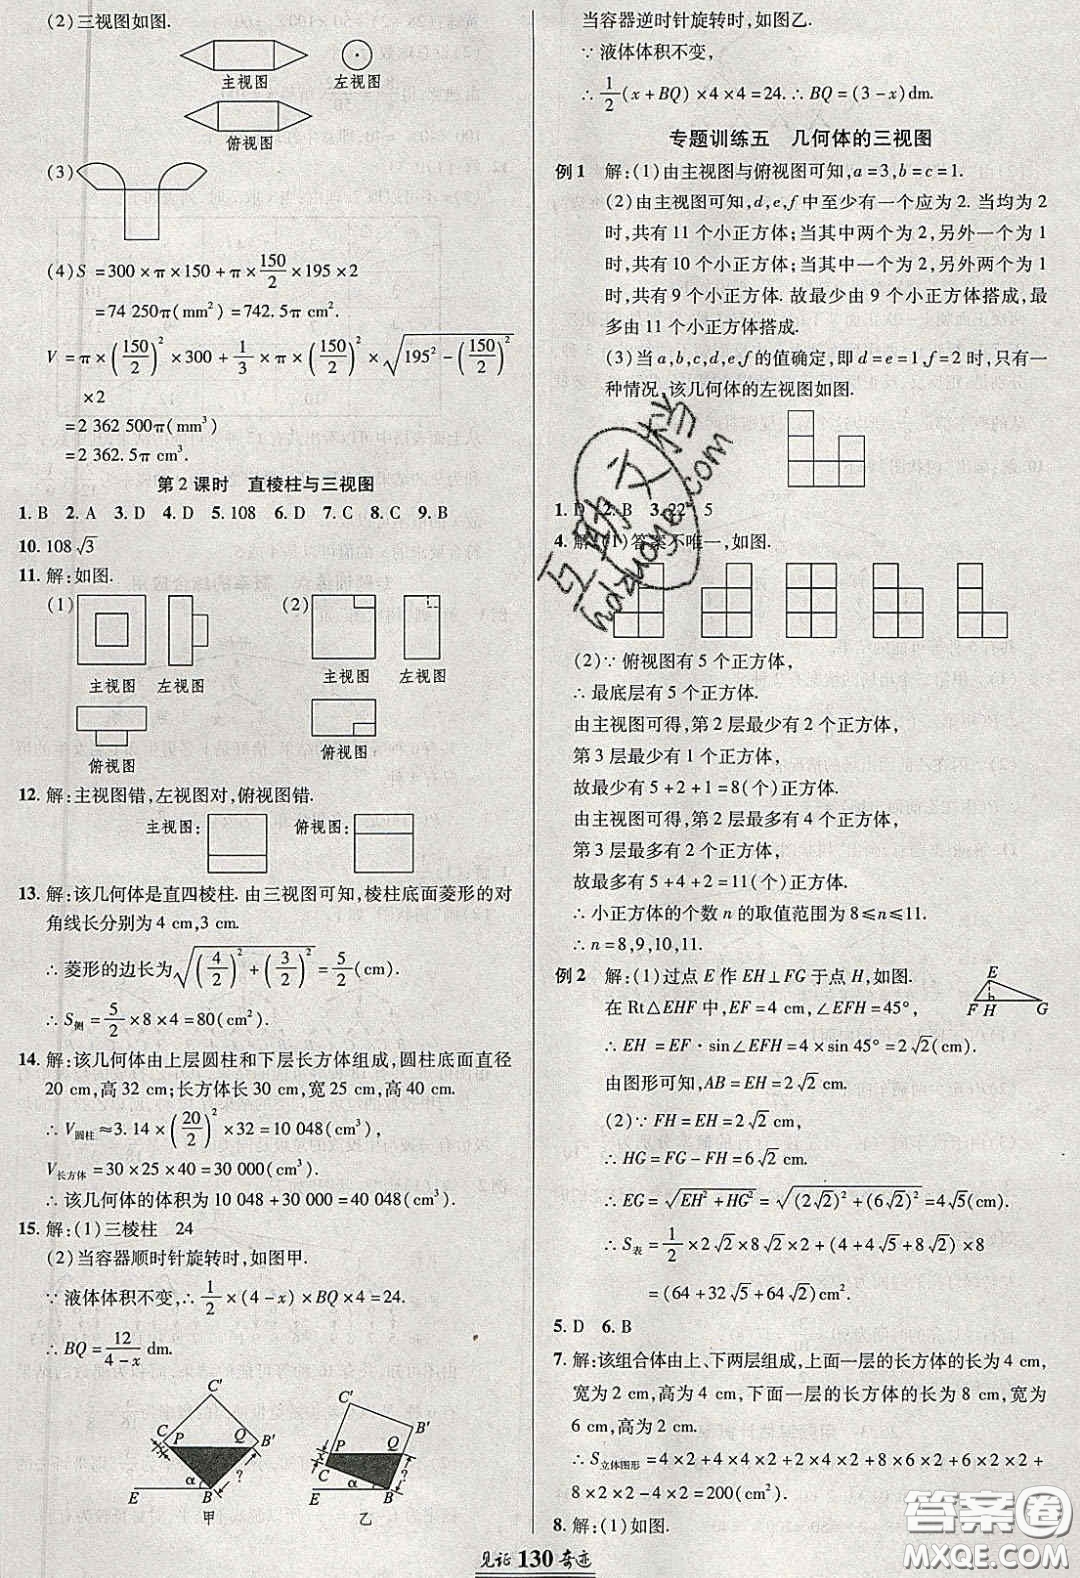 (2)三视图如图.
主视图 左视图
俯视图
(3)
(4)S =300×π×150+π×150/2×195×2
=74 250π(mm²)=742.5π cm².
V =π×(150/2)²×300+1/3×π×(150/2)²×√(195²-(150/2)²)
×2
=2 362 500π(mm³)
=2 362.5π cm³.
第2课时 直棱柱与三视图
1. B 2. A 3. D 4. D 5. 108 6. D 7. C 8. C 9. B
10. 108√3
11. 解:如图.
(1) (2)
主视图 左视图 主视图 左视图
俯视图 俯视图
12. 解:主视图错,左视图对,俯视图错.
主视图: 俯视图:
13. 解:该几何体是直四棱柱. 由三视图可知,棱柱底面菱形的对
角线长分别为 4 cm,3 cm.
∴ 菱形的边长为√((4/2)²+(3/2)²)=5/2(cm).
∴ S侧=5/2×8×4=80(cm²).
14. 解:该几何体由上层圆柱和下层长方体组成,圆柱底面直径
20 cm,高 32 cm;长方体长 30 cm,宽 25 cm,高 40 cm.
∴ V圆柱≈3.14×(20/2)²×32=10 048(cm³),
V长方体=30×25×40=30 000(cm³).
∴ 该几何体的体积为 10 048+30 000=40 048(cm³).
15. 解:(1)三棱柱 24
(2)当容器顺时针旋转时,如图甲.
∵ 液体体积不变,∴ 1/2×(4-x)×BQ×4=24.
∴ BQ=12/(4-x) dm.
C' C P Q B' α ? E B 甲
C' B' P Q C α ? E B 乙
当容器逆时针旋转时,如图乙.
∵ 液体体积不变,
∴ 1/2(x+BQ)×4×4=24. ∴ BQ=(3-x)dm.
专题训练五 几何体的三视图
例1 解:(1)由主视图与俯视图可知,a=3,b=c=1.
(2)由主视图可知,d,e,f 中至少有一个应为 2. 当均为 2
时,共有 11 个小正方体;当其中两个为 2,另外一个为 1
时,共有 10 个小正方体. 当其中一个为 2,另外两个为 1
时,共有 9 个小正方体. 故最少由 9 个小正方体搭成,最
多由 11 个小正方体搭成.
(3)当 a,b,c,d,e,f 的值确定,即 d=e=1,f=2 时,只有一
种情况,该几何体的左视图如图.
1. D 2. B 3. 22 5
4. 解:(1)答案不唯一,如图.
(2)∵ 俯视图有 5 个正方体,
∴ 最底层有 5 个正方体.
由主视图可得,第 2 层最少有 2 个正方体,
第 3 层最少有 1 个正方体,
故最少有 5+2+1=8(个)正方体.
由主视图可得,第 2 层最多有 4 个正方体,
第 3 层最多有 2 个正方体,
故最多有 5+4+2=11(个)正方体.
∴ 小正方体的个数 n 的取值范围为 8≤n≤11.
∴ n=8,9,10,11.
例2 解:(1)过点 E 作 EH⊥FG 于点 H,如图.
E F H G
在 Rt△EHF 中,EF=4 cm,∠EFH=45°,
∴ EH=EF·sin∠EFH=4×sin 45°=2√2(cm).
由图形可知,AB=EH=2√2 cm.
(2)∵ FH=EH=2√2 cm,
∴ HG=FG-FH=6√2 cm.
∴ EG=√(EH²+HG²)=√((2√2)²+(6√2)²)=4√5(cm).
∴ S表=1/2×2√2×8√2×2+(4+4√5+8√2)×8
=(64+32√5+64√2)cm².
5. D 6. B
7. 解:该组合体由上、下两层组成,上面一层的长方体的长为 4 cm,
宽为 2 cm,高为 4 cm,下面一层的长方体的长为 8 cm,宽为
6 cm,高为 2 cm.
∴ S立体图形=4×2+4×2×2+4×2×2+8×6×2+6×2×2+
8×2×2-4×2=200(cm²).
8. 解:(1)如图.
见证130奇迹
互助文档
hdzuoye.com
答案圈
MXQE.COM